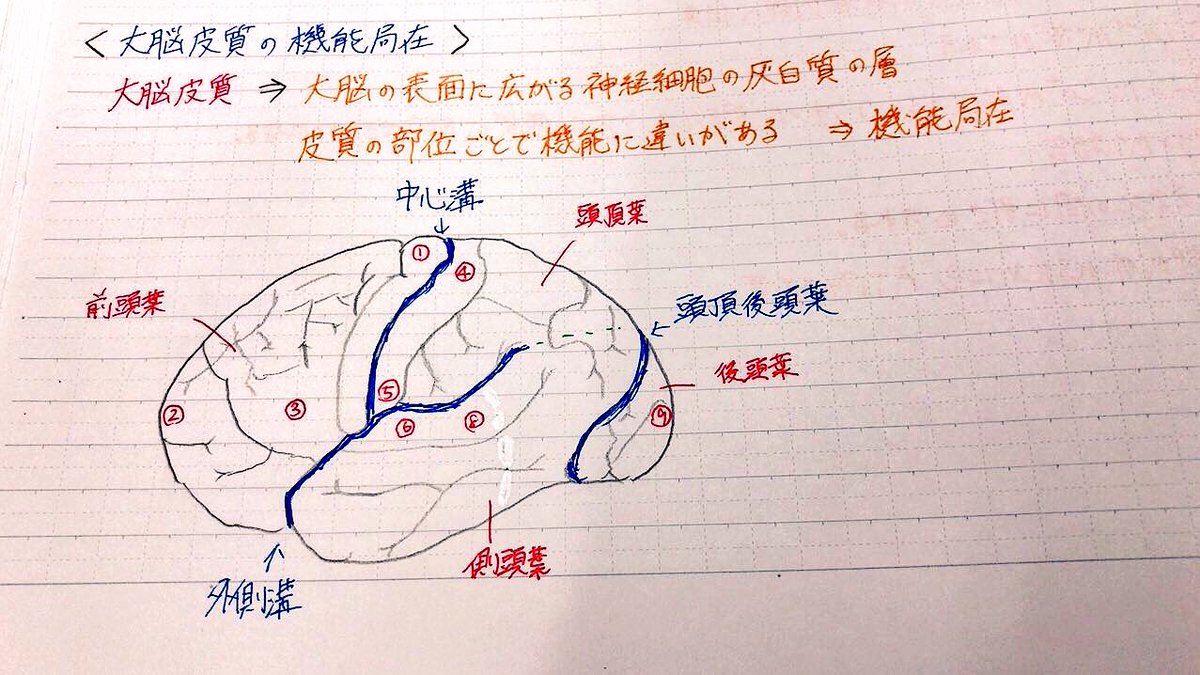 ＜大脳皮質の機能局在＞
大脳皮質 ⇒ 大脳の表面に広がる神経細胞の灰白質の層
皮質の部位ごとで機能に違いがある ⇒ 機能局在
中心溝
頭頂葉
① ④
前頭葉
頭頂後頭葉
後頭葉
⑤
② ③ ⑥ ⑧ ⑨
側頭葉
外側溝